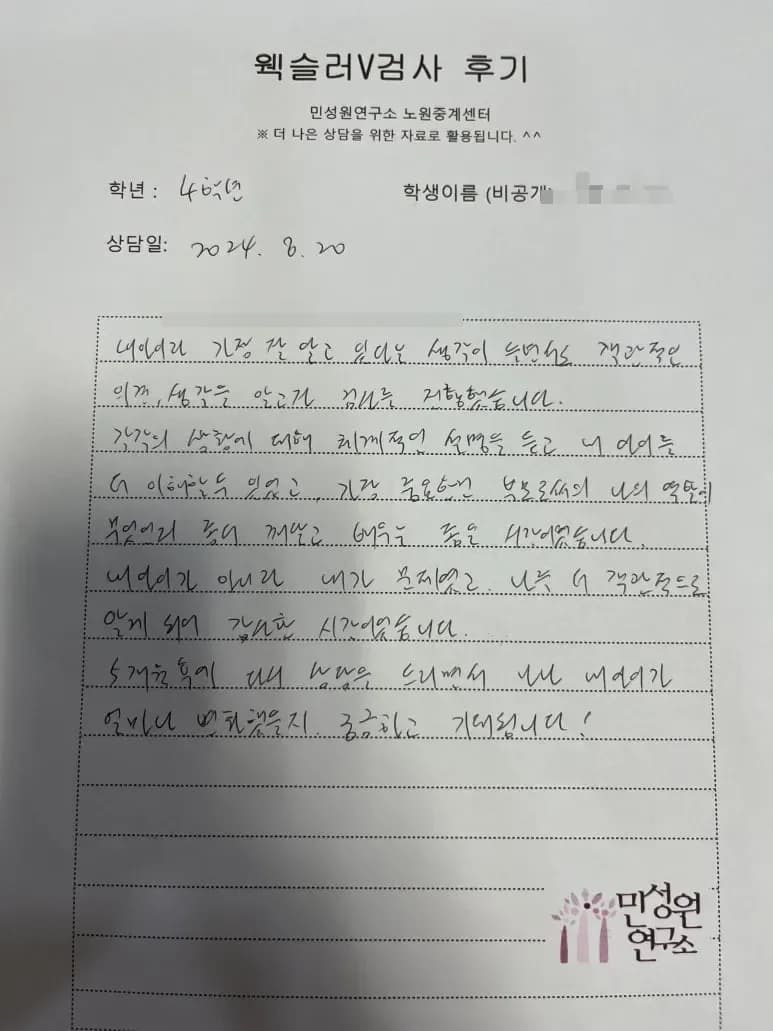 웩슬러V검사 후기
민성원연구소 노원중계센터
※ 더 나은 상담을 위한 자료로 활용됩니다. ^^
학년 : 4학년
학생이름 (비공개)
상담일: 2024. 8. 20
내아이라 가장 잘 알고 있다는 생각이 들면서도 객관적인
의견, 생각을 알고자 검사를 진행했습니다.
각각의 상황에 대해 체계적인 설명을 듣고 내 아이를
더 이해할 수 있었고, 가장 중요한건 부모로써의 나의 역할이
무엇인지 좀더 깨닫고 배우는 좋은 시간이었습니다.
내아이가 아니라 내가 문제였고 나를 더 객관적으로
알게 되어 감사한 시간이었습니다.
5개월 후에 다시 상담을 드리면서 나나 내아이가
얼마나 변화했을지 궁금하고 기대됩니다!
민성원
연구소